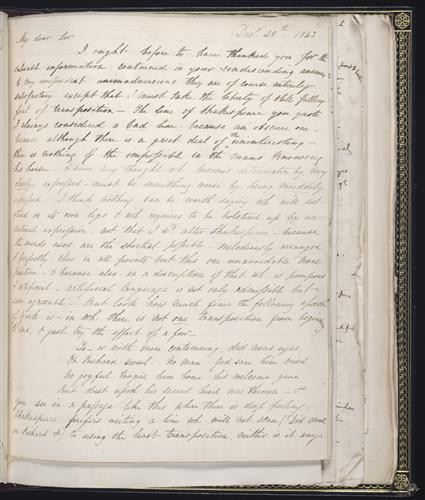 Dec.r 20th 1843
My dear Sir
I ought before to have thanked you for the
valuable information contained in your condescending answer
to my impudent animadversions they are of course entirely
satisfactory except that I must take the liberty of still falling
foul of transposition – The line of Shakespeare you quote
I always considered a bad line – because an obscure one –
because although there is a great deal of the uninteresting –
there is nothing of the impossible in the mans knowing
his horse – & since any thought wh. becomes by being
clearly expressed – must be something worse by being muddily
expressed. I think nothing can be worth saying wh. will not
stand on its own legs & wh. requires to be bolstered up by un-
natural expression – not that I wd. alter Shakespeare – because
the words used are the shortest possible – melodiously arranged
& perfectly clear in all points but this one unavoidable trans
position – & because also in a description of that wh. is pompous
& artificial – artificial language is not only admissible but
even agreeable – But look how much finer the following speech
of York is – in wh. there is not one transposition from beginning
to end, & just try the effect of a few –
so with more contemning, did mens eyes
On Richard scowl. No man God save him cried
No joyful tongue him home his welcome gave
But dust upon his sacred head was thrown – &c
you see in a passage like this when there is deep feeling,
Shakespeare prefers writing a line wh. will not scan (Did scowl
on Richard &c) to using the least transposition, neither is it any